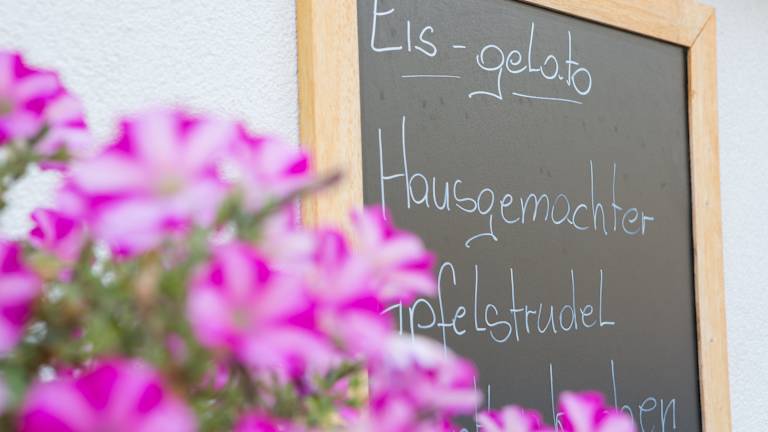 Eis - gelato
Hausgemachter
apfelstrudel